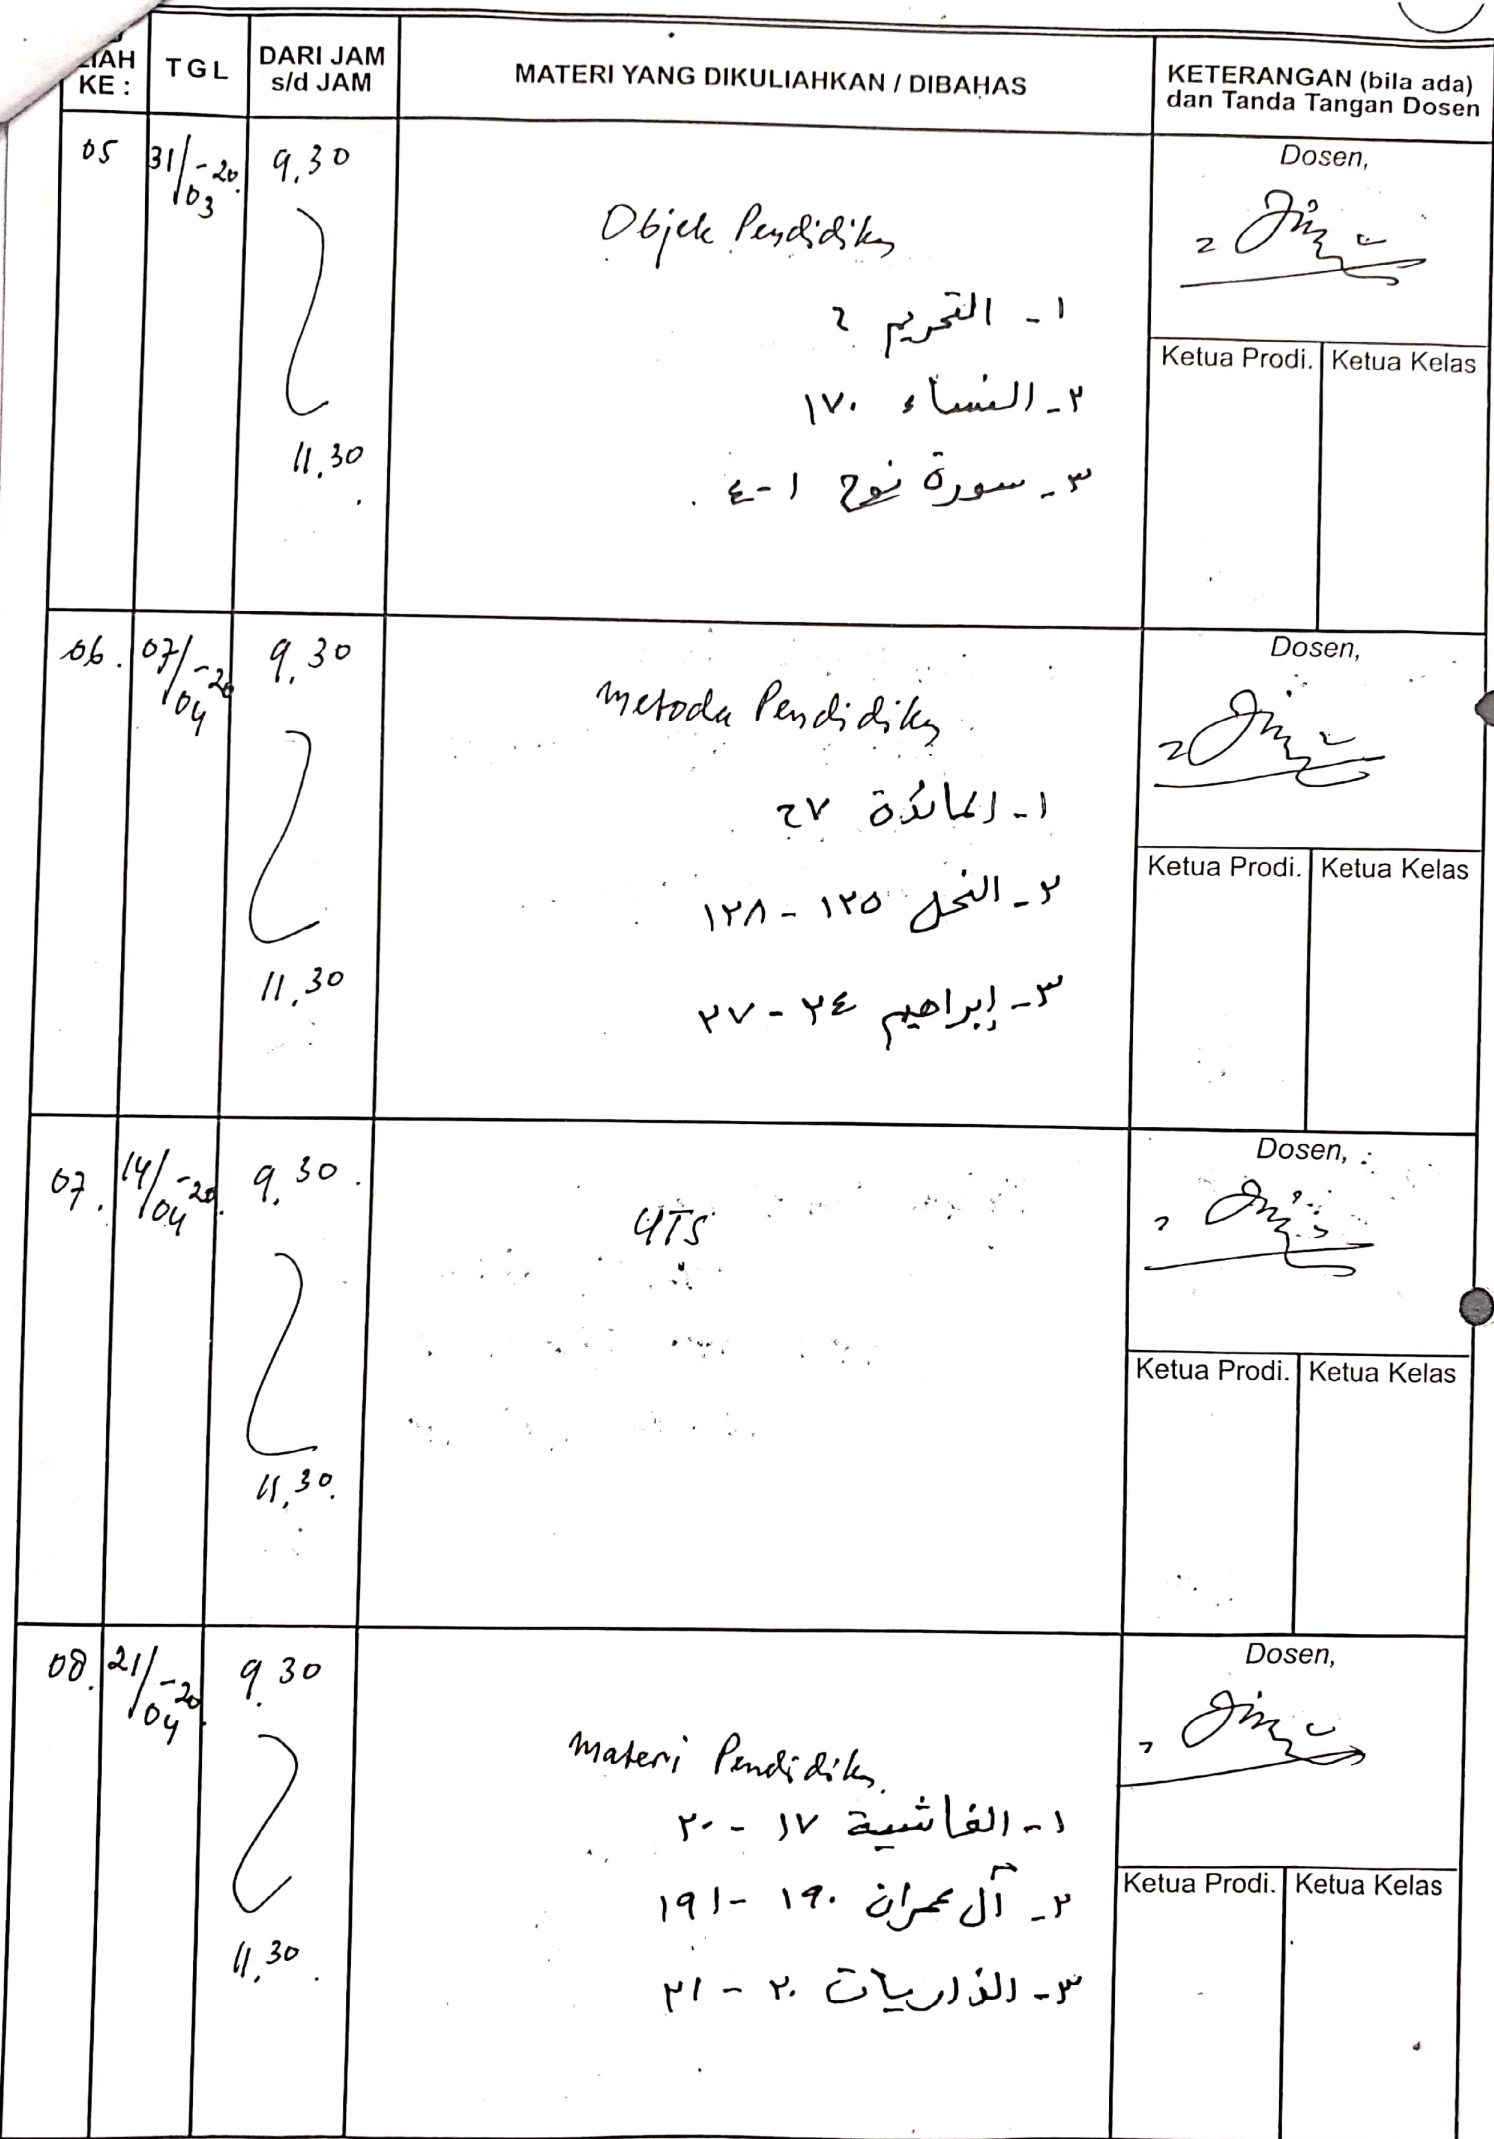 IAH
KE :
TGL
DARI JAM
s/d JAM
MATERI YANG DIKULIAHKAN / DIBAHAS
KETERANGAN (bila ada)
dan Tanda Tangan Dosen
05
31/03-20.
9.30
11.30
Objek Pendidikan
١ - التحريم ٦
٢ - النساء ١٧٠
٣ - سورة نوح ١-٤
Dosen,
Ketua Prodi.
Ketua Kelas
06.
07/04-20
9.30
11.30
Metoda Pendidikan
١ - المائدة ٦٧
٢ - النحل ١٢٥ - ١٢٨
٣ - إبراهيم ٢٤ - ٢٧
Dosen,
Ketua Prodi.
Ketua Kelas
07.
14/04-20.
9.30.
11.30.
UTS
Dosen,
Ketua Prodi.
Ketua Kelas
08.
21/04-20.
9.30
11.30.
Materi Pendidikan
١ - الغاشية ١٧ - ٢٠
٢ - آل عمران ١٩٠ - ١٩١
٣ - الذاريات ٢٠ - ٢١
Dosen,
Ketua Prodi.
Ketua Kelas